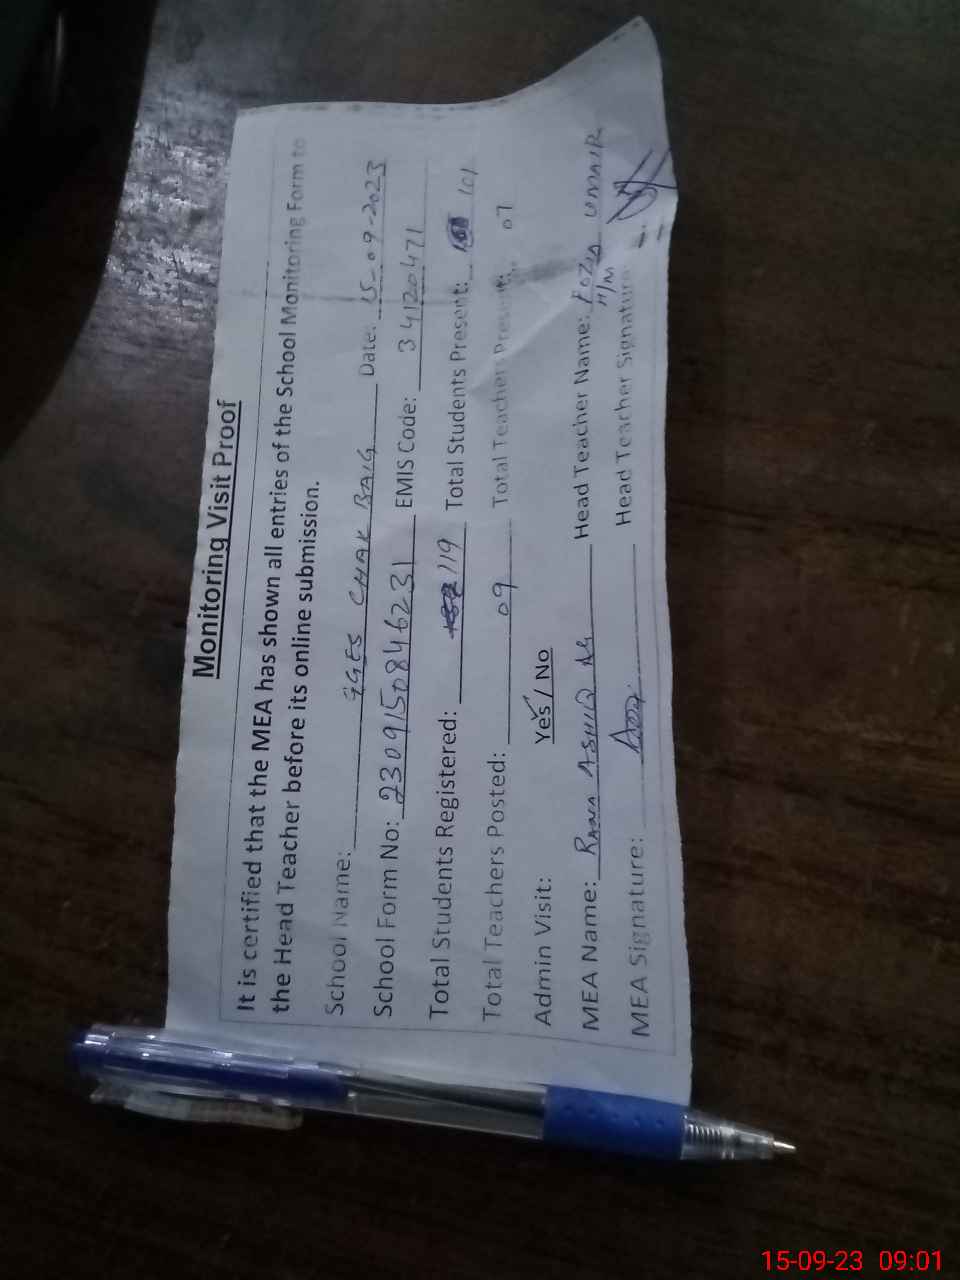 Monitoring Visit Proof
It is certified that the MEA has shown all entries of the School Monitoring Form to
the Head Teacher before its online submission.
School Name: GGES CHAK BAIG Date: 15-09-2023
School Form No: 230915084 6231 EMIS Code: 34120471
Total Students Registered: 119 Total Students Present: 101
Total Teachers Posted: 09 Total Teachers Present: 07
Admin Visit: Yes / No
MEA Name: RANA ASHIQ Ali Head Teacher Name: FOZIA UMAIR
H/M
MEA Signature: Head Teacher Signature
15-09-23 09:01